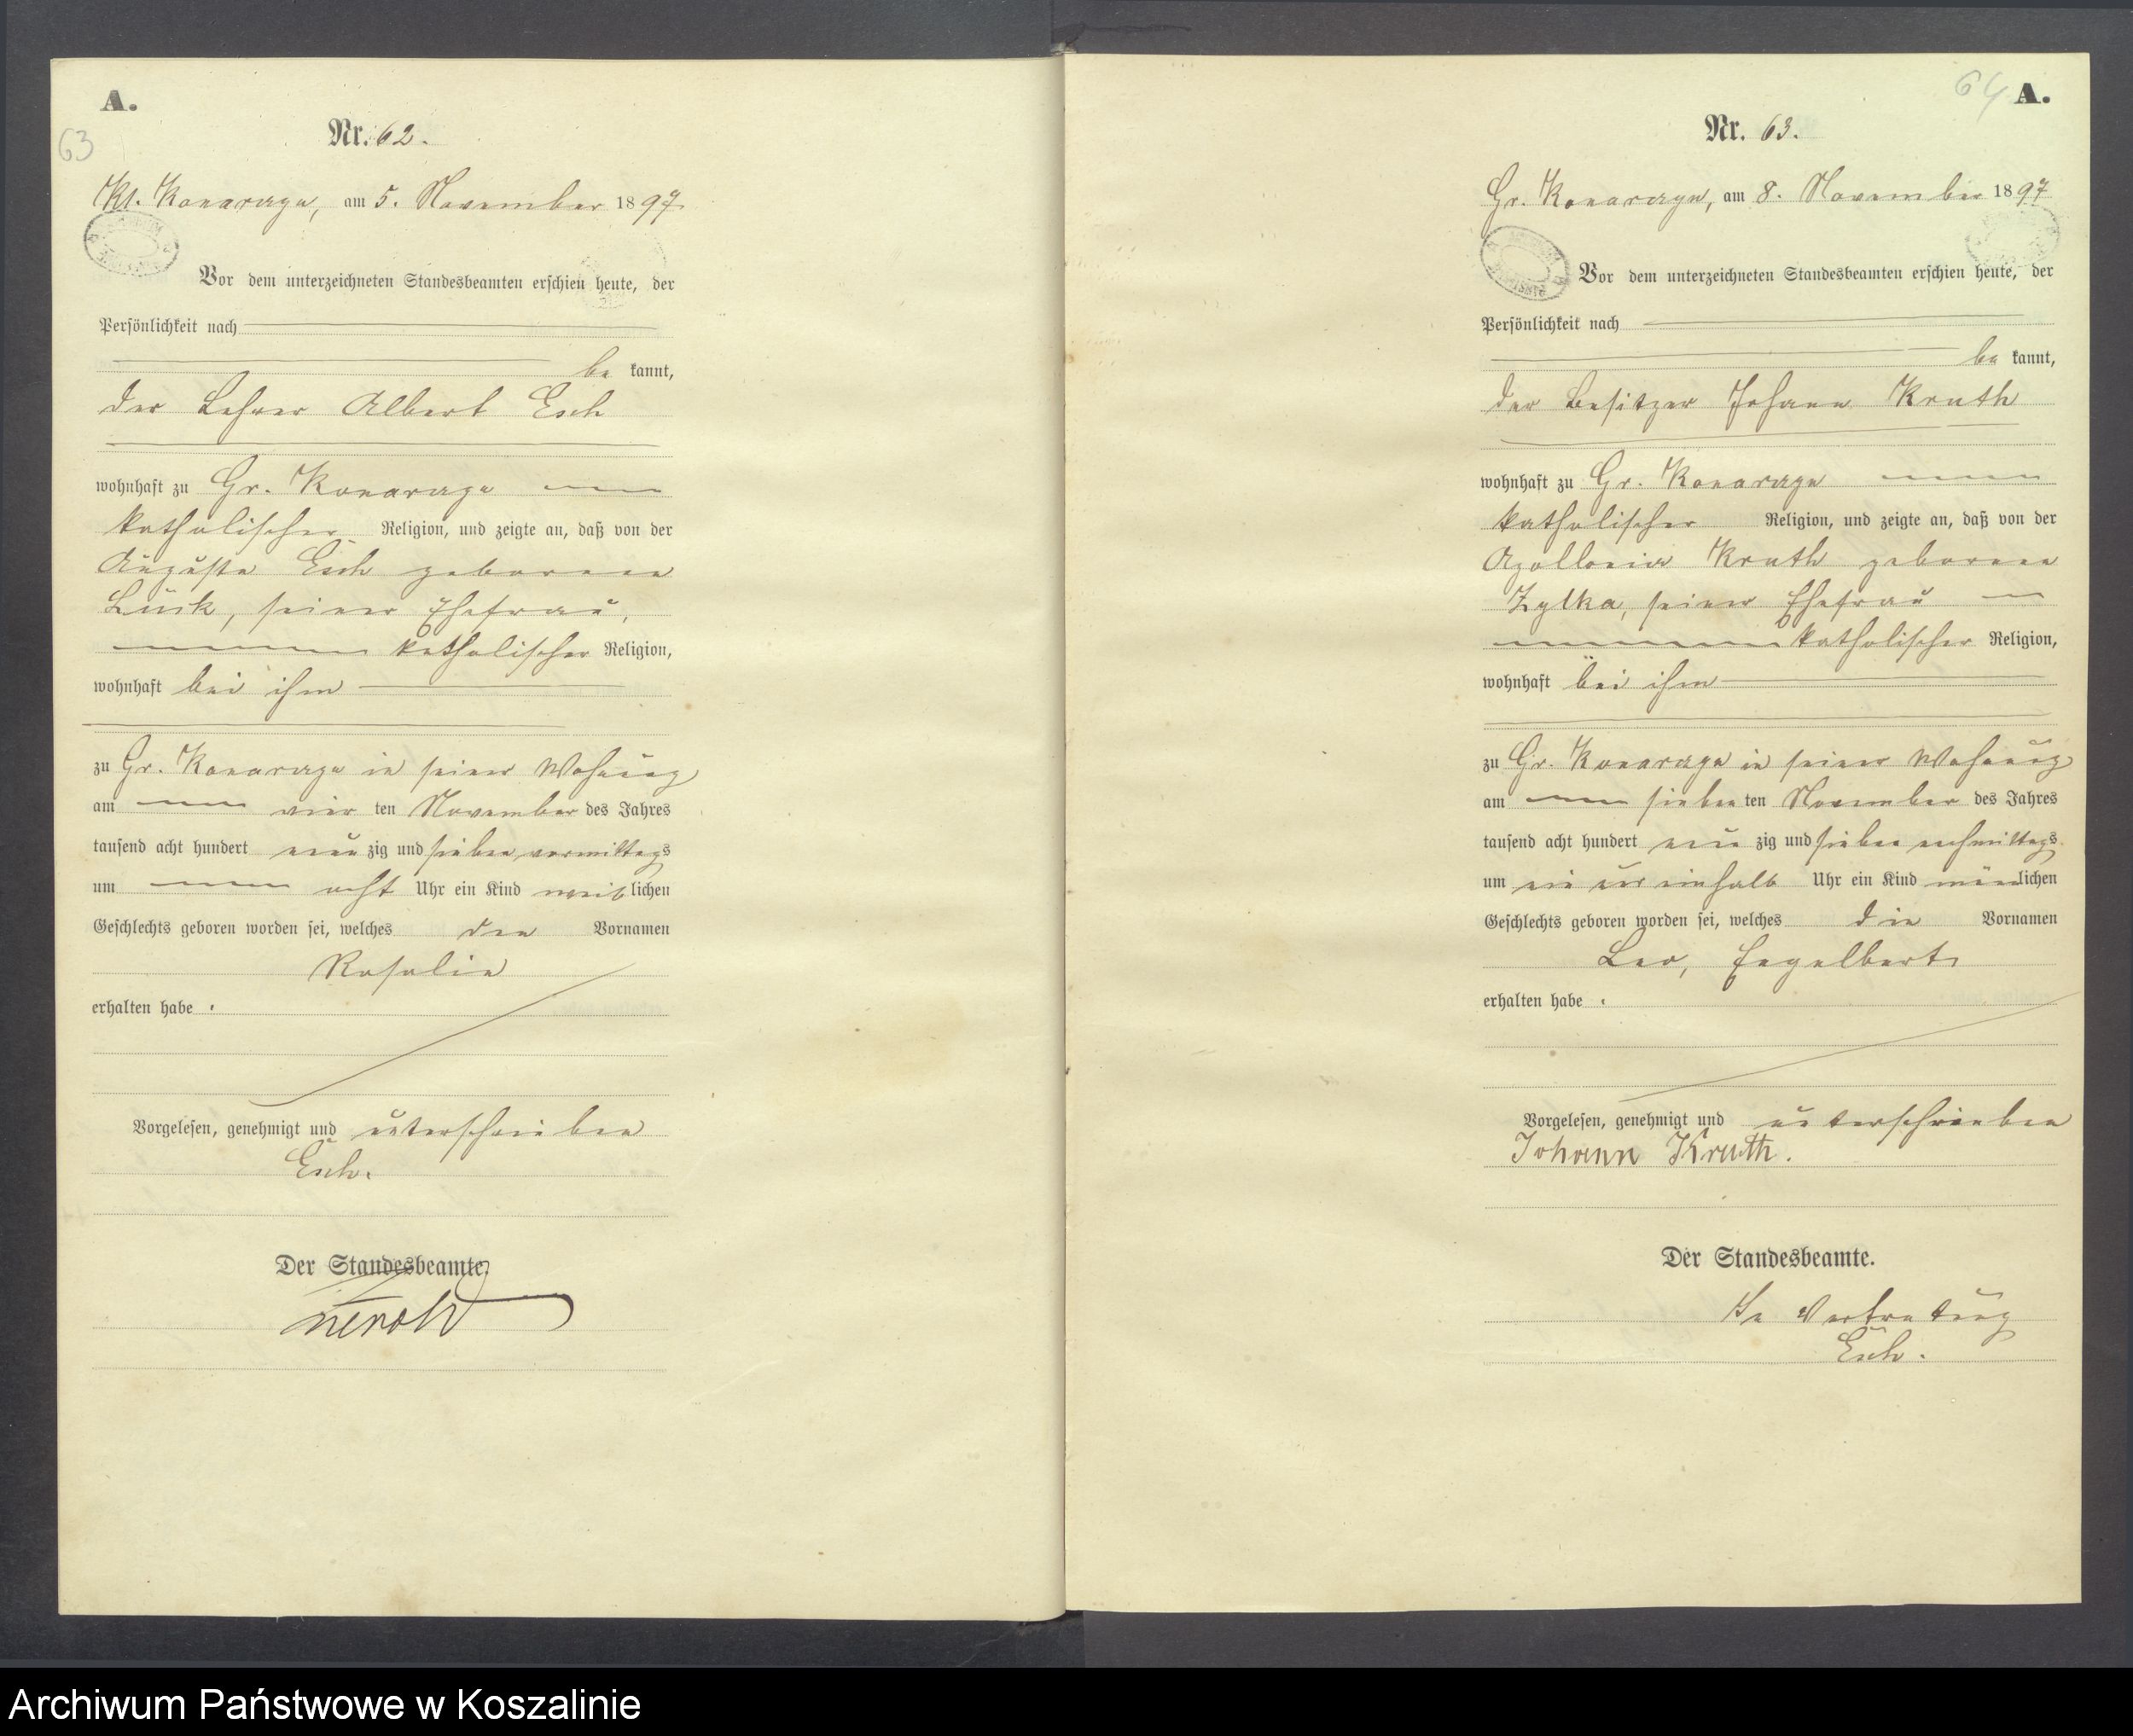 A.
63
Nr. 62.
Kl. Konarczyn, am 5. November 1897
Vor dem unterzeichneten Standesbeamten erschien heute, der
Persönlichkeit nach
be kannt,
der Lehrer Albert Esch
wohnhaft zu Gr. Konarczyn
katholischer Religion, und zeigte an, daß von der
Auguste Esch geborenen
Lück, seiner Ehefrau,
katholischer Religion,
wohnhaft bei ihm
zu Gr. Konarczyn in seiner Wohnung
am vier ten November des Jahres
tausend acht hundert neun zig und sieben vormittags
um acht Uhr ein Kind weib lichen
Geschlechts geboren worden sei, welches den Vornamen
Rosalie
erhalten habe.
Vorgelesen, genehmigt und unterschrieben
Esch.
Der Standesbeamte.
64 A.
Nr. 63.
Gr. Konarczyn, am 8. November 1897
Vor dem unterzeichneten Standesbeamten erschien heute, der
Persönlichkeit nach
be kannt,
der Besitzer Johann Kruth
wohnhaft zu Gr. Konarczyn
katholischer Religion, und zeigte an, daß von der
Apollonia Kruth geborenen
Zylka, seiner Ehefrau
katholischer Religion,
wohnhaft bei ihm
zu Gr. Konarczyn in seiner Wohnung
am sieben ten November des Jahres
tausend acht hundert neun zig und sieben nachmittags
um ein Uhr ein Kind männlichen
Geschlechts geboren worden sei, welches die Vornamen
Leo, Engelbert
erhalten habe.
Vorgelesen, genehmigt und unterschrieben
Johann Kruth.
Der Standesbeamte.
In Vertretung
Esch.
Archiwum Państwowe w Koszalinie